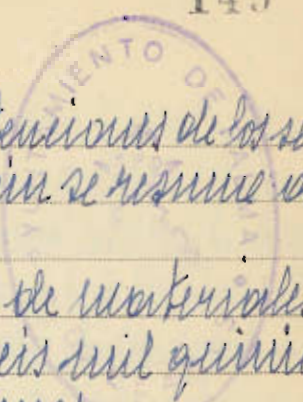 149
MIENTO DE
tenciones de los se
in se resume a
de materiales
eis mil quinie